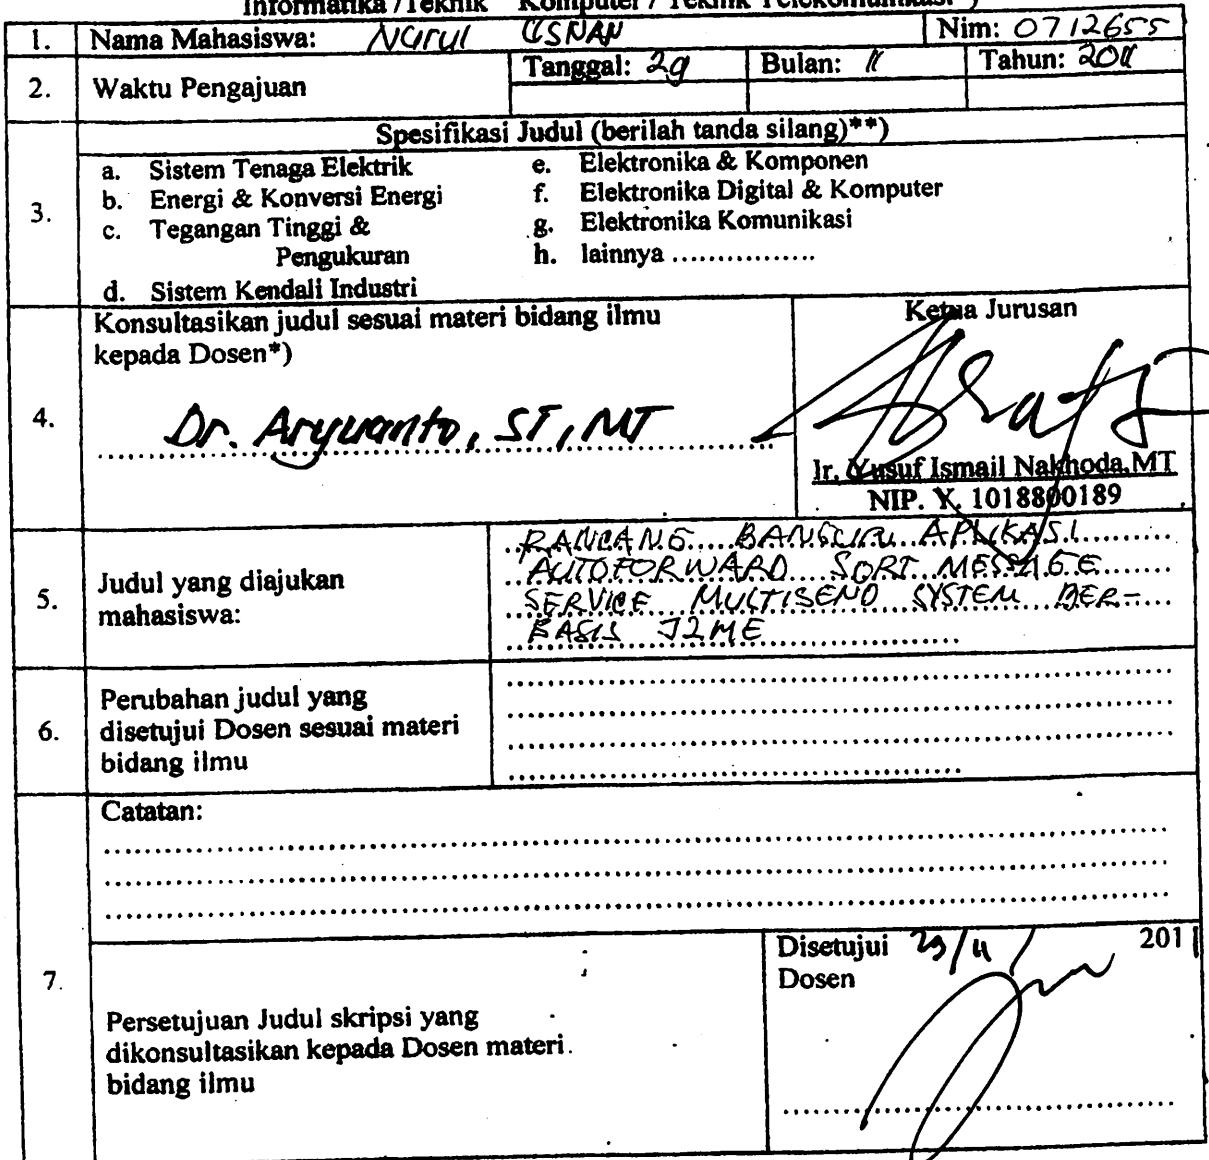 Informatika /Teknik Komputer / Teknik Telekomunikasi *)
1. Nama Mahasiswa: NURUL USNAN Nim: 0712655
2. Waktu Pengajuan Tanggal: 29 Bulan: 11 Tahun: 2011
Spesifikasi Judul (berilah tanda silang)**)
3.
a. Sistem Tenaga Elektrik
b. Energi & Konversi Energi
c. Tegangan Tinggi &
Pengukuran
d. Sistem Kendali Industri
e. Elektronika & Komponen
f. Elektronika Digital & Komputer
g. Elektronika Komunikasi
h. lainnya ................
4.
Konsultasikan judul sesuai materi bidang ilmu
kepada Dosen*)
Dr. Aryuanto, ST, MT
Ketua Jurusan
Ir. Yusuf Ismail Nakhoda,MT
NIP. Y. 1018800189
5.
Judul yang diajukan
mahasiswa:
RANCANG BANGUN APLIKASI
AUTOFORWARD SORT MESSAGE
SERVICE MULTISEND SYSTEM BER-
BASIS J2ME
6.
Perubahan judul yang
disetujui Dosen sesuai materi
bidang ilmu
7.
Catatan:
Persetujuan Judul skripsi yang
dikonsultasikan kepada Dosen materi
bidang ilmu
Disetujui 29/11 2011
Dosen